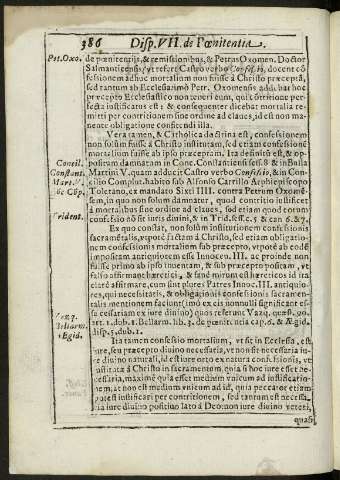 386 Disp. VII. de Pœnitentia.
Pet. Oxo.
de pœnitentijs, & remissionibus, & Petrus Oxomen. Doctor
Salmanticensis, vt refert Castro verbo Confessio, docent cō
fessionem adhuc mortalium non fuisse à Christo præceptā,
sed tantum ab Ecclesia: imò Petr. Oxomensis addi bat hoc
præcepto Ecclesiastico non teneri eum, qui cōtritione per-
fecta iustificatus est: & consequenter dicebat mortalia re-
mitti per contritionem sine ordine ad claues, id est non ma-
nente obligatione confitendi illa.
Vera tamen, & Catholica doctrina est, confessionem
non solùm fuisse à Christo institutam, sed etiam confessionē
mortalium fuisse ab ipso præceptam. Ita definitū est, & op-
Concil.
positum damnatum in Conc. Constantiensi sess. 8 & in Bulla
Constant.
Martini V. quam adducit Castro verbo Confessio, & in Con-
Mart. V.
cilio Complut. habito sub Alfonso Carrillo Archiepiscopo
Toletano, ex mandato Sixti IIII. contra Petrum Oxomē-
sem, in quo non solum damnatur, quod contritio iustificet
à mortalibus sine ordine ad claues, sed etiam quod eorum
Trident.
confessio nō sit iuris diuini, & in Trid. sess. & can 6. & 7.
Ex quo constat, non solùm institutionem confessionis
sacramētalis, vt potè factam à Christo, sed etiam obligatio-
nem confessionis mortalium sub præcepto, vt potè ab eodē
impositam antiquiotem esse Innoc. III. ac proinde non
fuisse primo ab ipso inuentam, & sub præcepto positam, vt
falso affirmāt hæretici, & sanè mirum est hæreticos id ita
clarè affirmare, cum sint plures Patres Innoc. III. antiquio-
res, qui necessitatis, & obligationis confessionis sacramen-
talis mentionem faciūt (imò ex eis nonnulli significāt es-
se cessariam ex iure diuino) quos referunt Vazq. quæst. 90.
Bellarm.
art. 1. dub. 1. Bellarm. lib. 3. de pœnitentia cap. 6. & Ægid.
Ægid.
disp. 5. dub. 1.
Ita tamen confessio mortalium, vt sit in Ecclesia, est
iure, seu præcepto diuino necessaria, vt non sit necessaria iu-
re diuino naturali, id est iure orto ex natura confessionis, vt
institutà à Christo in sacramentum. quia si hoc iure esset ne-
cessaria, maximè quia esset medium vnicum ad iustificatio-
nem, at non est medium vnicum ad id, quia peccator etiam
potest iustificari per contritionem, sed tantum est necessaria
iure diuino positiuo lato à Deo: non iure diuino veteri,
quasi